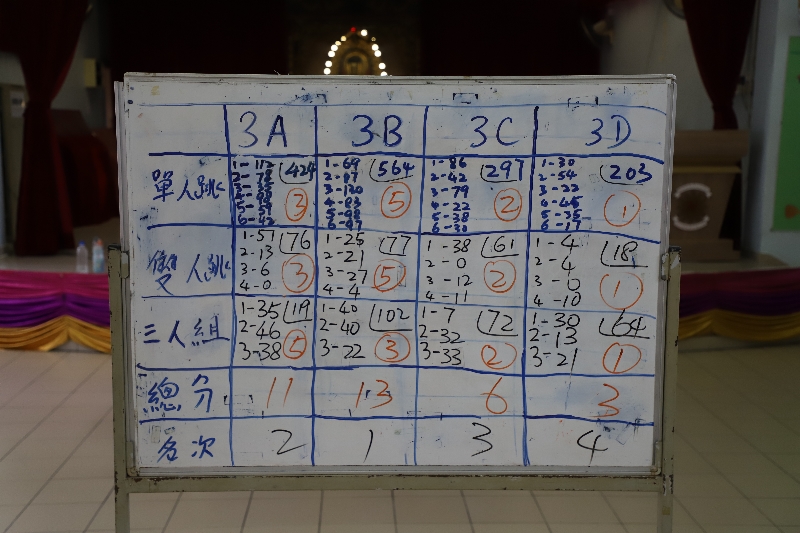 3A 3B 3C 3D
單人跳
1-112 424
2-78
③
1-69 564
⑤
1-86 297
2-42
3-79
4-22
5-38
6-30
②
1-30 203
2-54
3-22
6-17
①
雙人跳
1-57 76
2-13
3-6
4-0
③
1-25 77
2-21
3-27
4-4
⑤
1-38 61
2-0
3-12
4-11
②
1-4 18
2-4
3-0
4-10
①
三人組
1-35 119
2-46
3-38
⑤
1-40 102
2-40
3-22
③
1-7 72
2-32
3-33
②
1-30 64
2-13
3-21
①
總分 11 13 6 3
名次 2 1 3 4